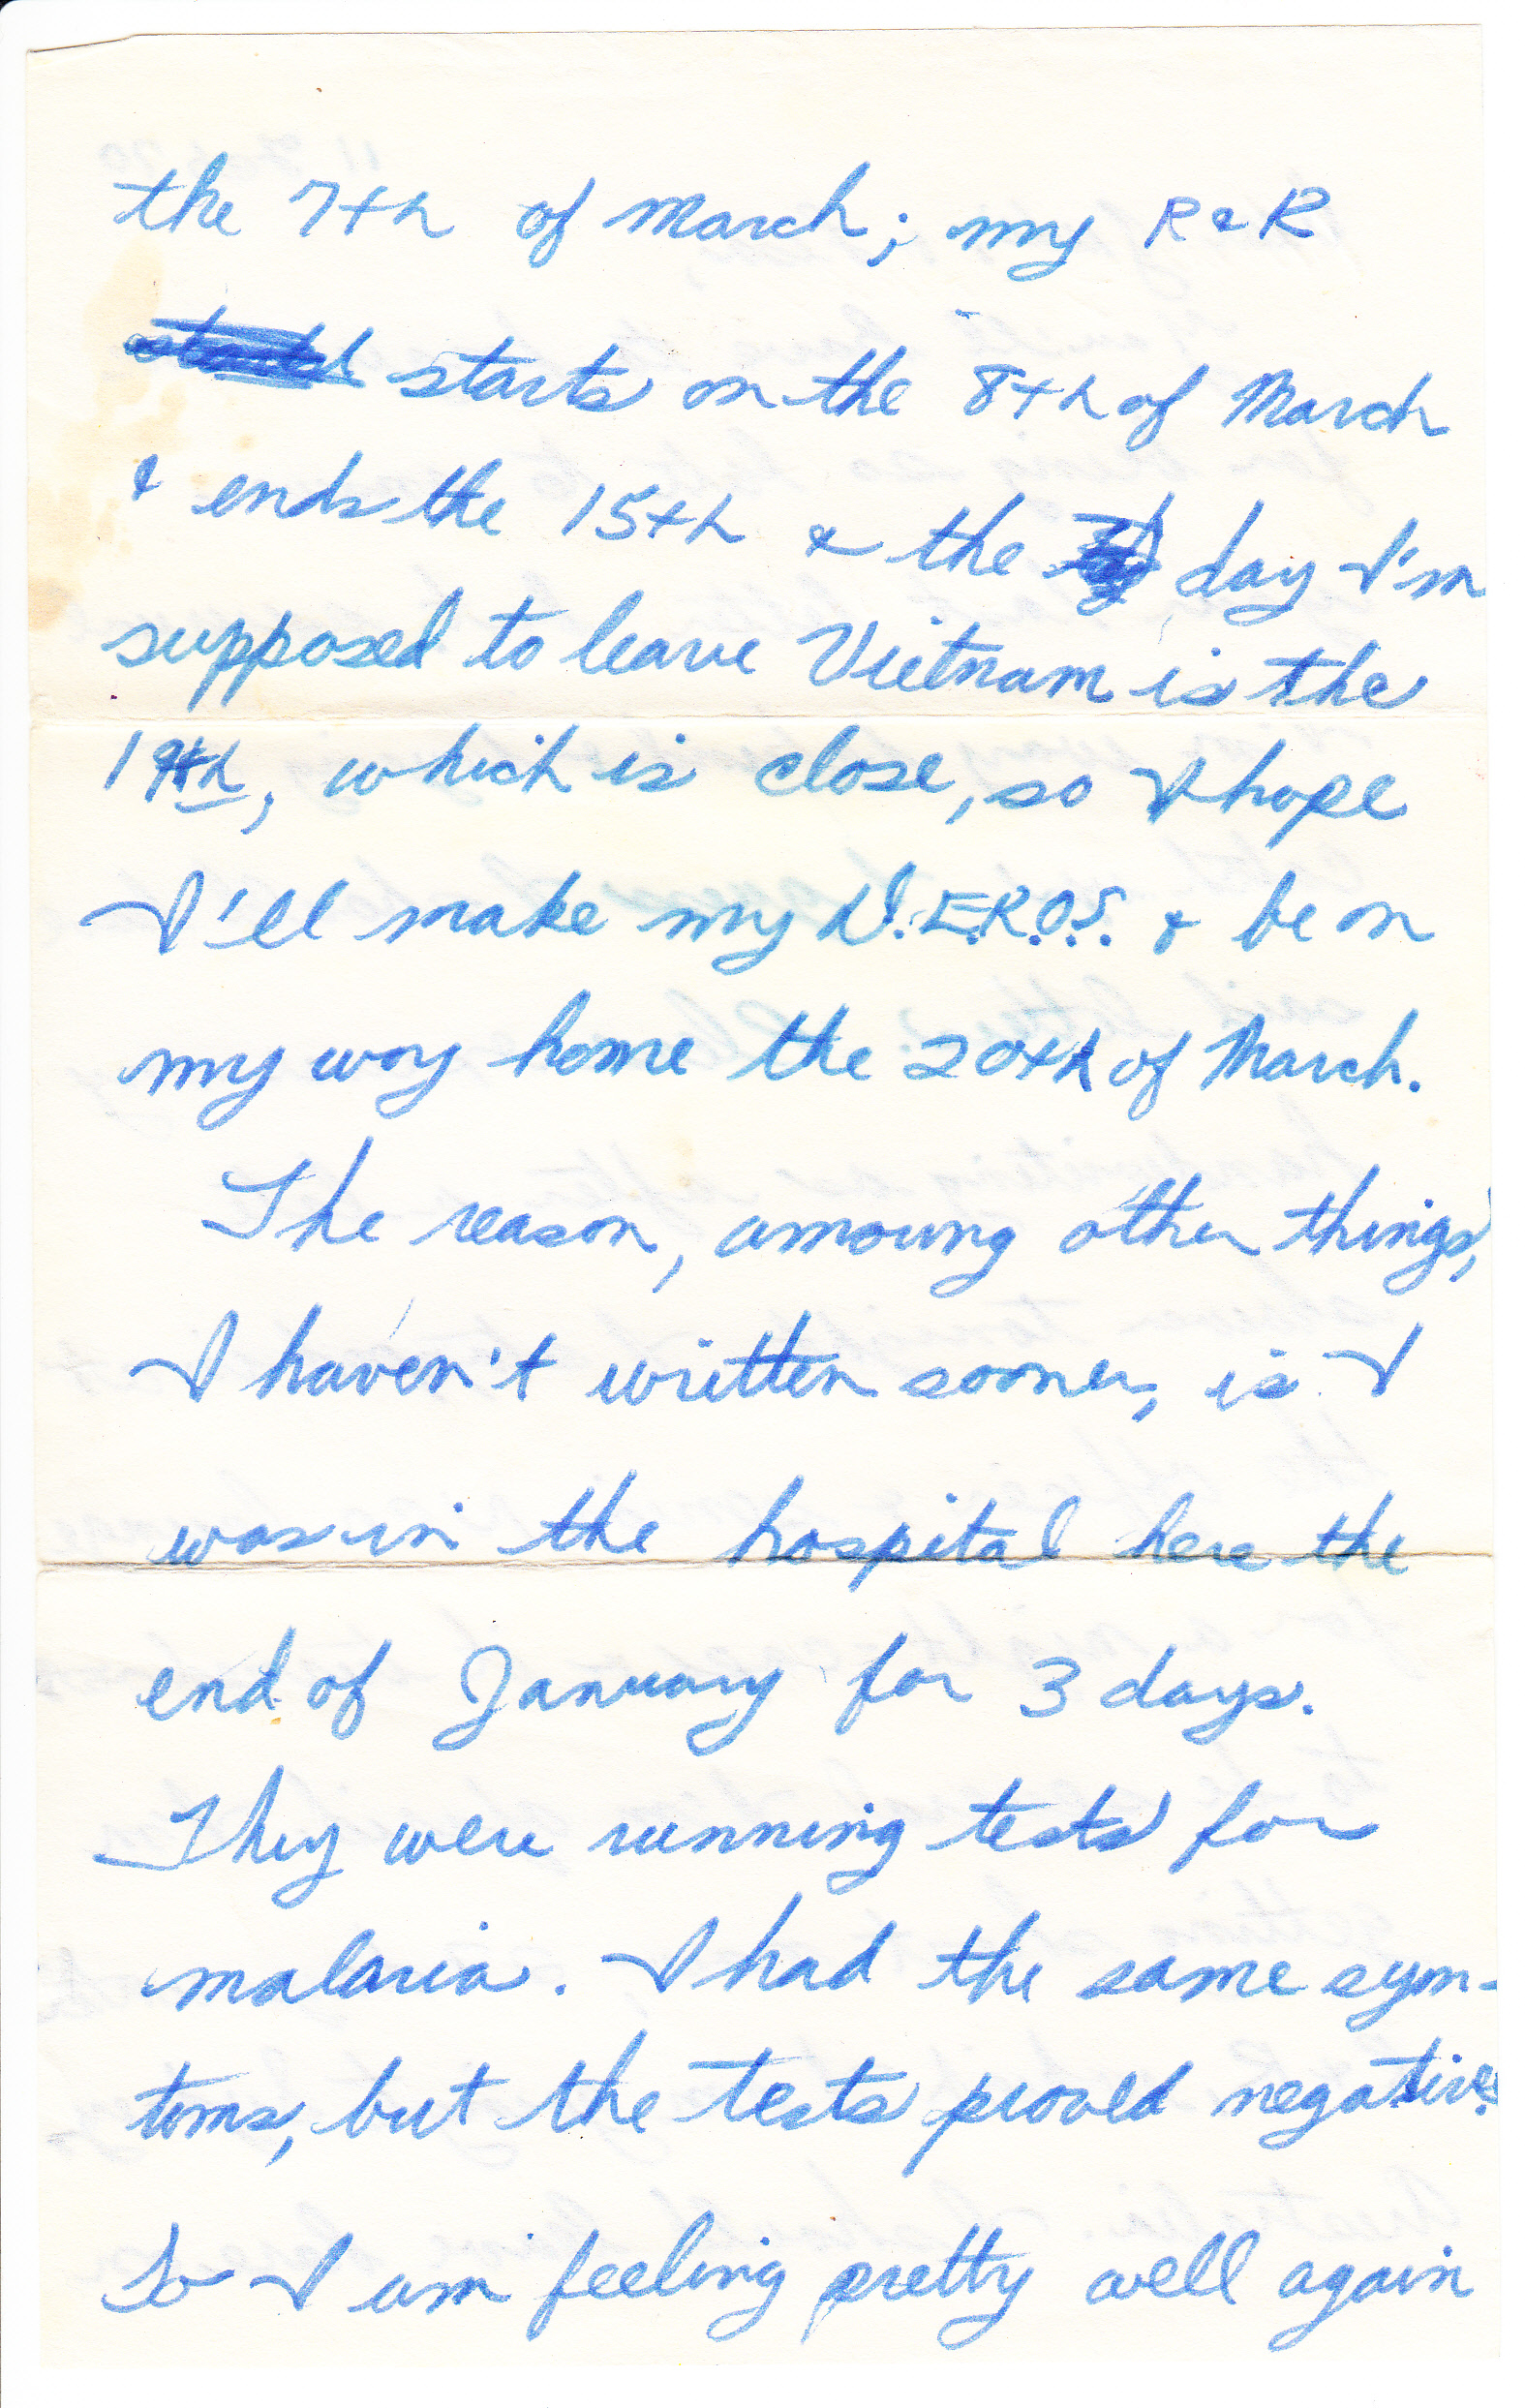 the 7th of March; my R & R
starts on the 8th of March
& ends the 15th & the day I'm
supposed to leave Vietnam is the
19th, which is close, so I hope
I'll make my D.E.R.O.S. & be on
my way home the 20th of March.
The reason, amoung other things,
I haven't written sooner, is I
was in the hospital here the
end of January for 3 days.
They were running tests for
malaria. I had the same sym-
toms, but the tests proved negative.
So I am feeling pretty well again